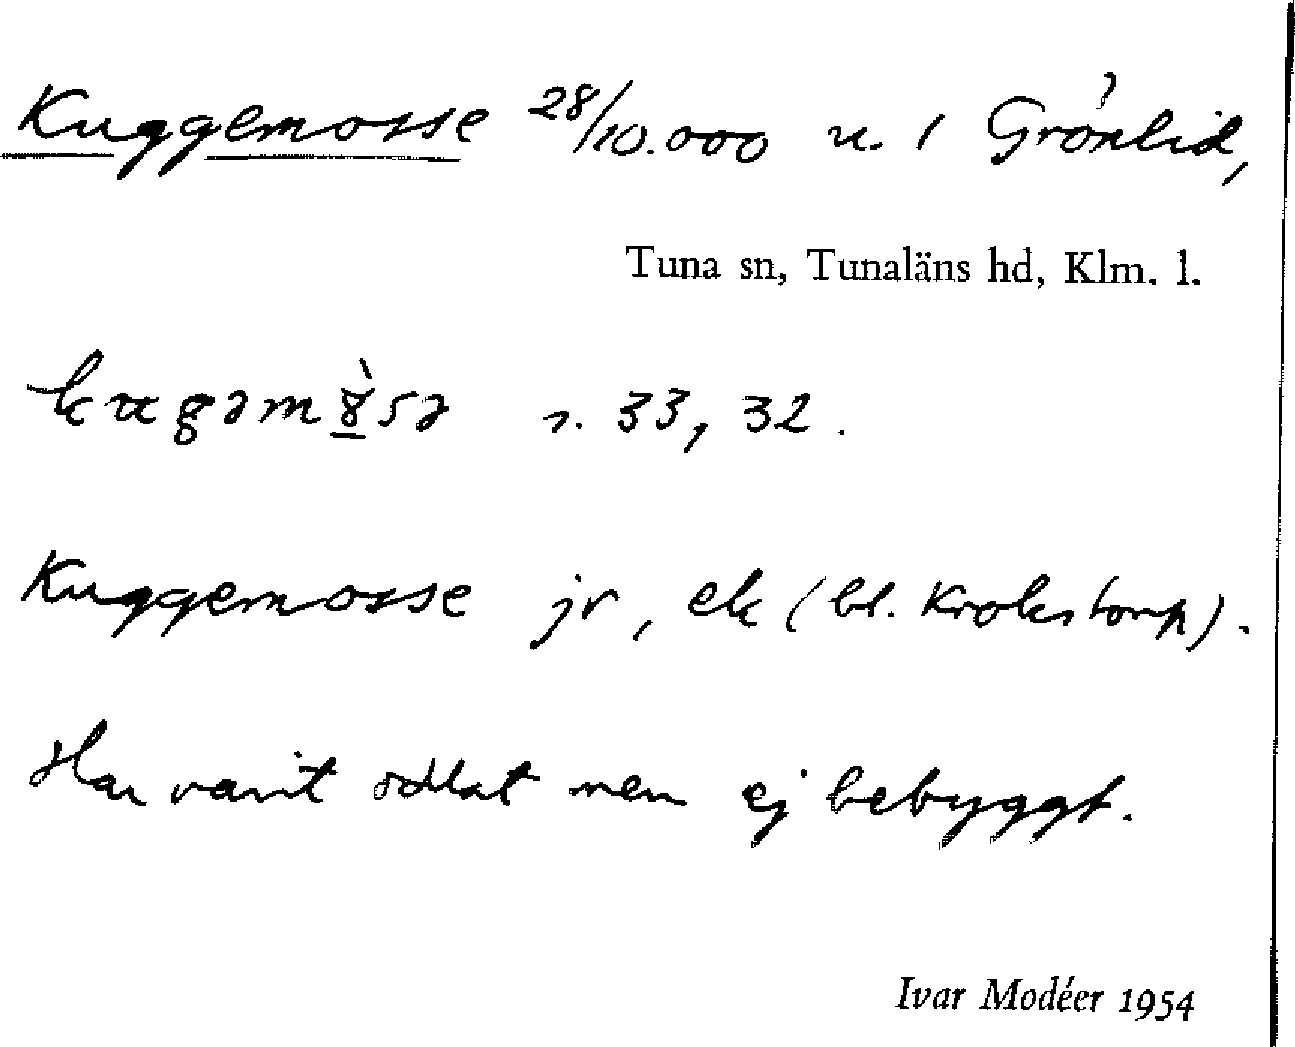 Kuggemosse 28/10.000 u. 1 Grönlid,
Tuna sn, Tunaläns hd, Klm. l.
kugəm8̲̀sə s. 33, 32.
Kuggemosse jr, ek (bl. Krokstorp).
Har varit odlat men ej bebyggt.
Ivar Modéer 1954